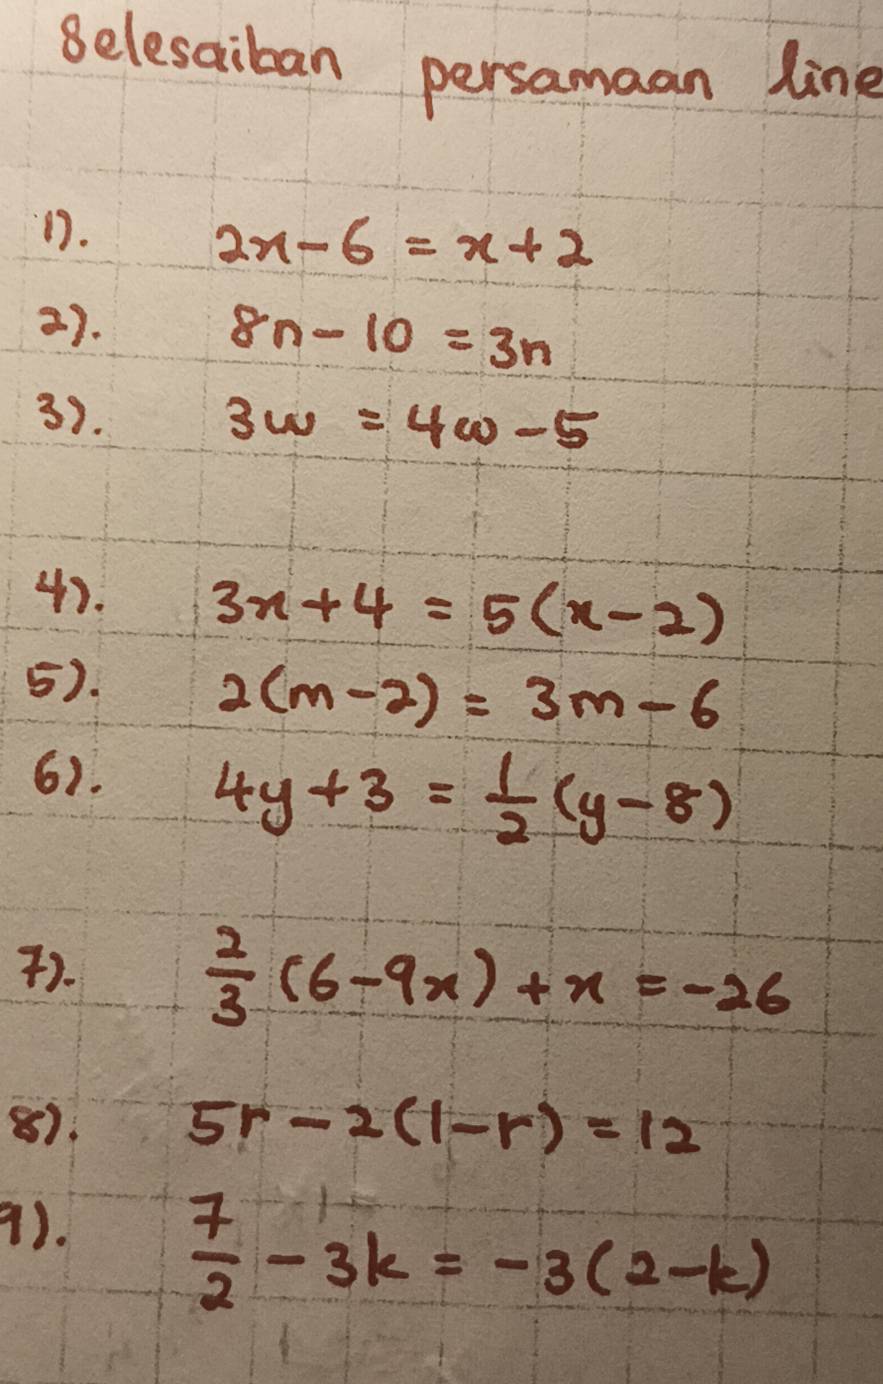 Selesaikan persamaan line
1). 2x - 6 = x + 2
2). 8n - 10 = 3n
3). 3w = 4w - 5
4). 3x + 4 = 5(x - 2)
5). 2(m - 2) = 3m - 6
6). 4y + 3 = 1/2 (y - 8)
7). 2/3 (6 - 9x) + x = -26
8). 5r - 2(1 - r) = 12
9). 7/2 - 3k = -3(2 - k)